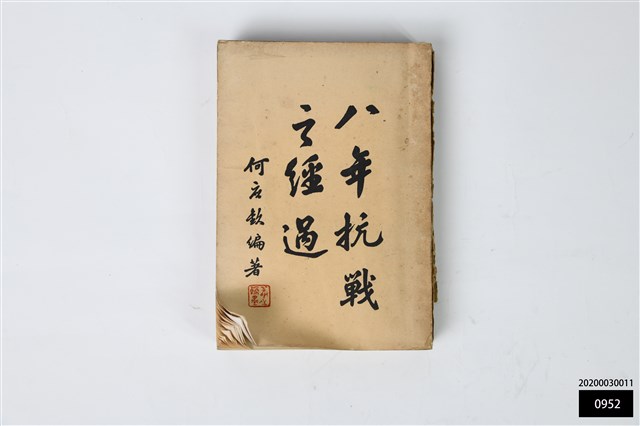 八年抗戰
之經過
何应欽編著
20200030011
0952